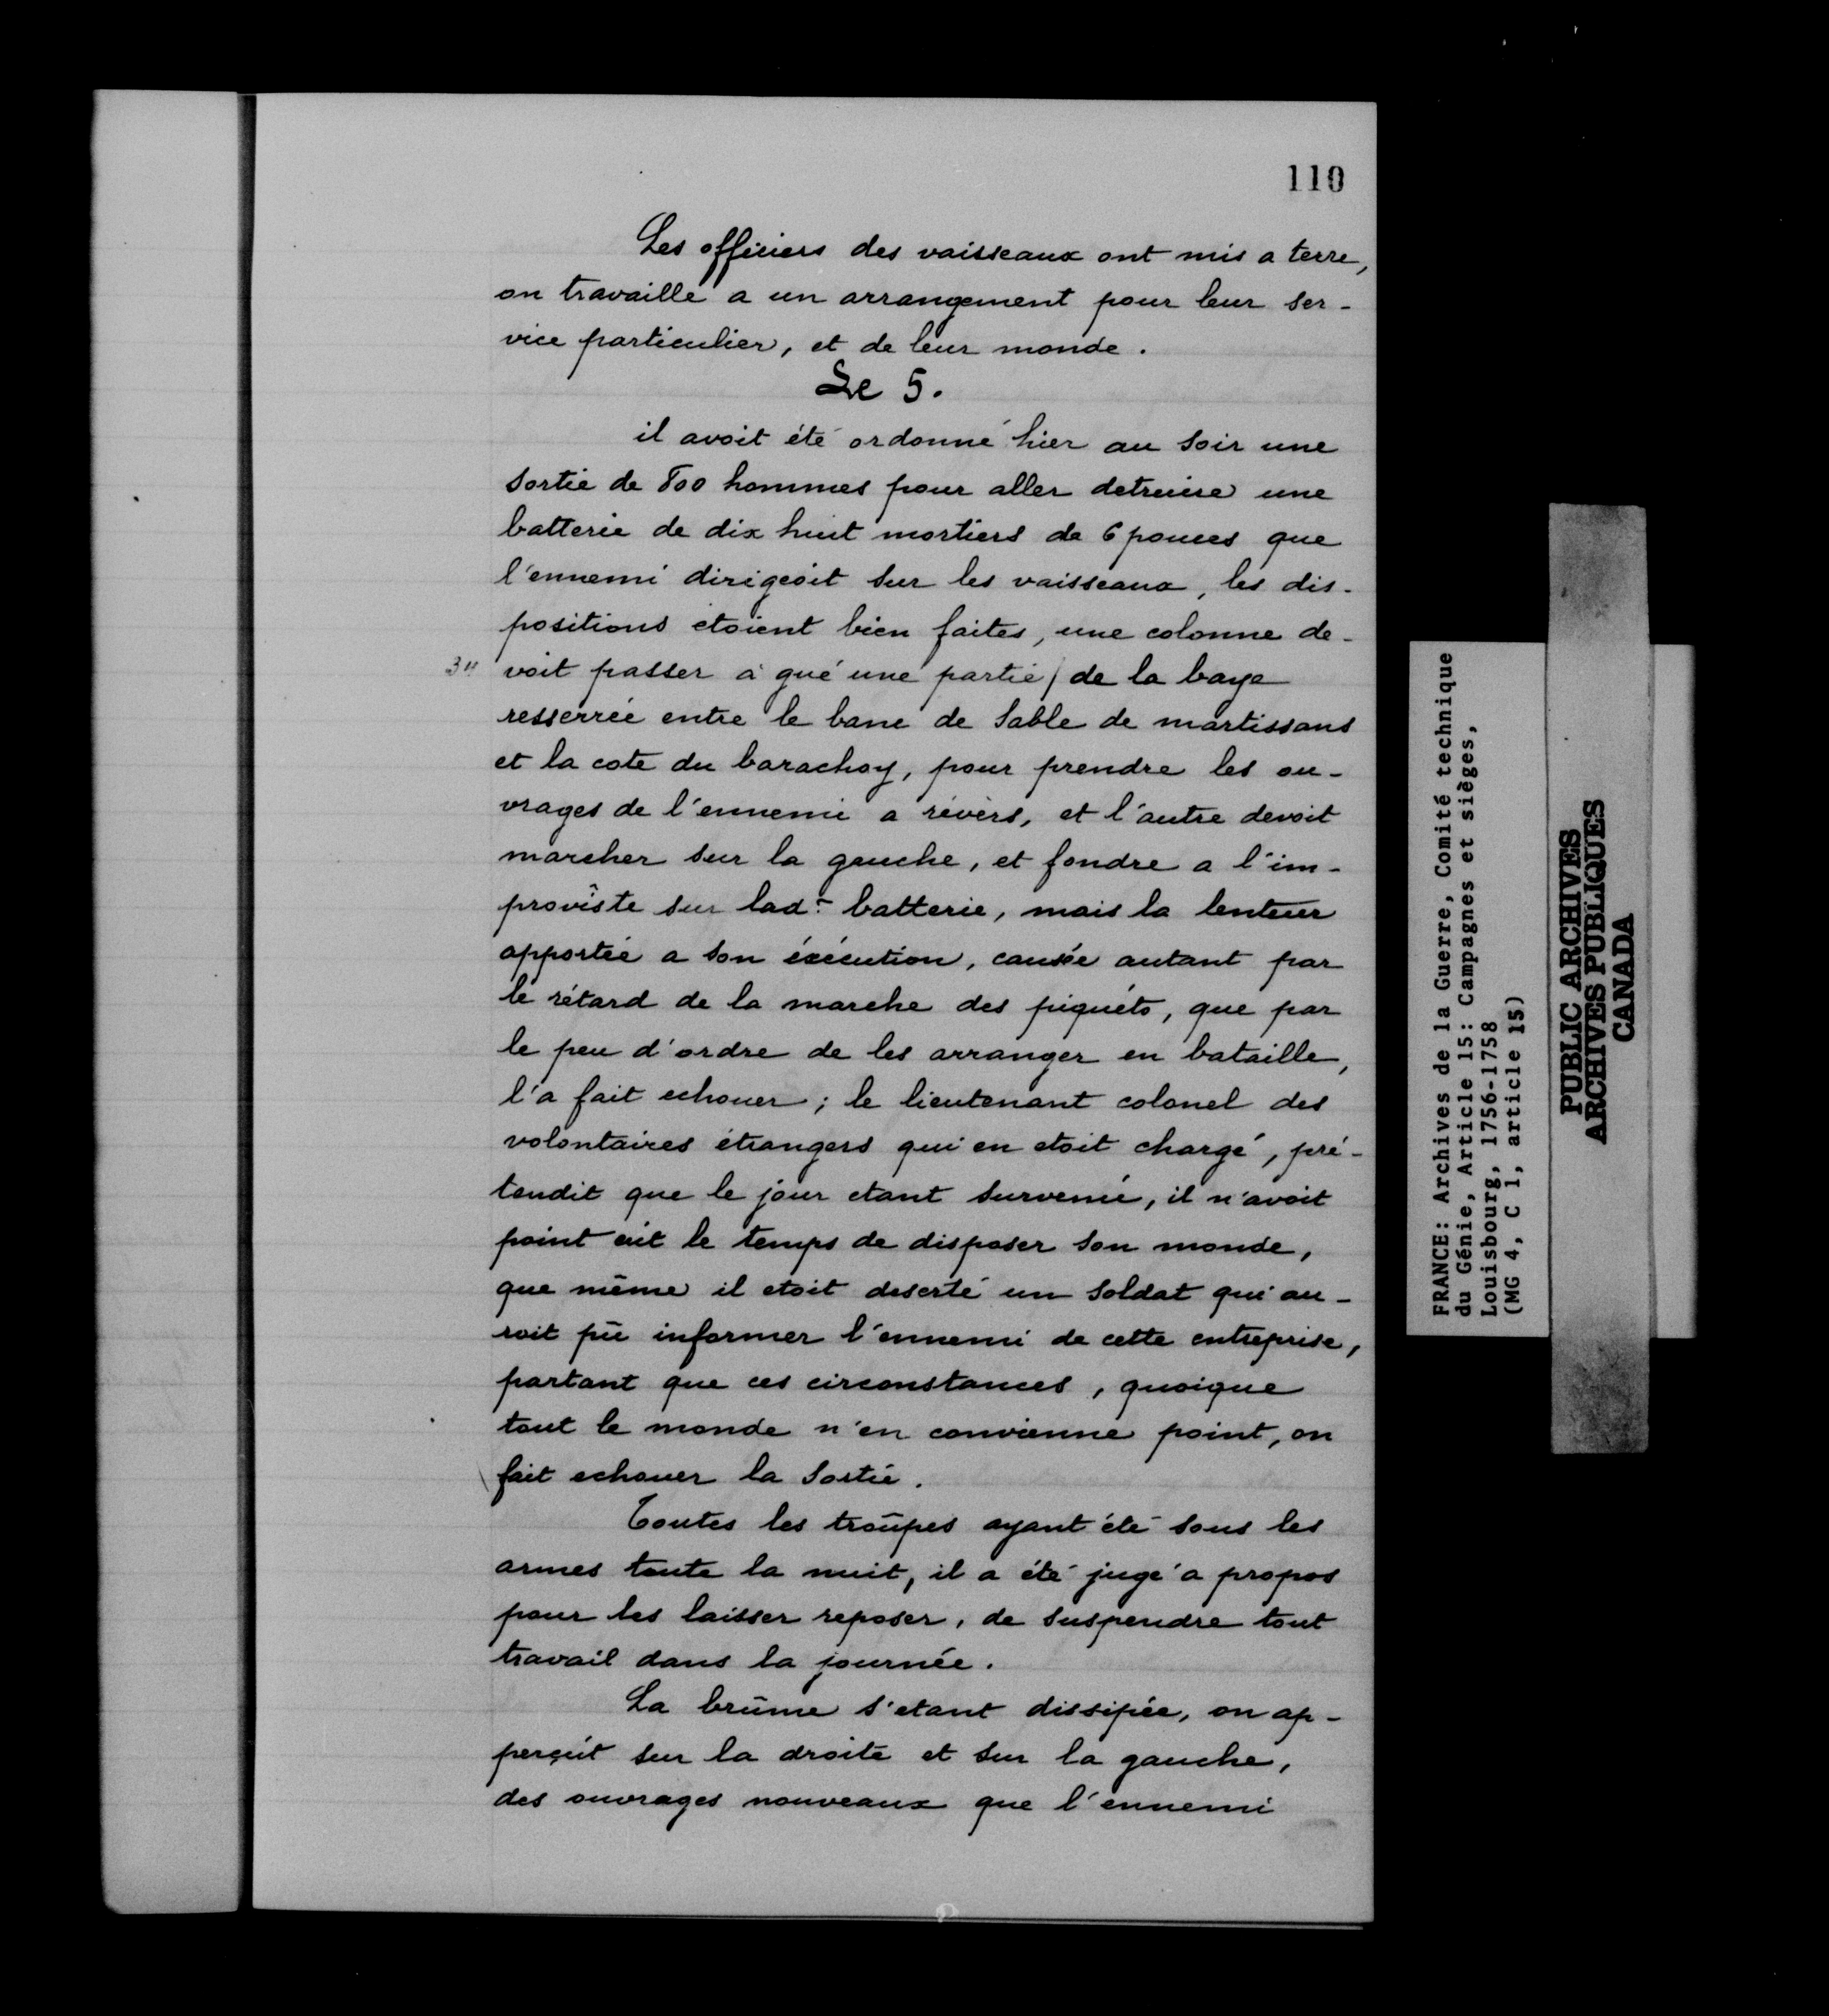 110
Les officiers des vaisseaux ont mis a terre,
on travaille a un arrangement pour leur ser-
vice particulier, et de leur monde.
Le 5.
il avoit été ordonné hier au soir une
sortie de 800 hommes pour aller detruire une
batterie de dix huit mortiers de 6 pouces que
l'ennemi dirigeoit sur les vaisseaux, les dis-
positions etoient bien faites, une colonne de-
34 voit passer a gué une partie / de la baye
resserrée entre le banc de sable de martissans
et la cote du barachoy, pour prendre les ou-
vrages de l'ennemi a révèrs, et l'autre devoit
marcher sur la gauche, et fondre a l'im-
provîste sur lad: batterie, mais la lenteur
apportée a son éxécution, causée autant par
le rétard de la marche des piquéts, que par
le peu d'ordre de les arranger en bataille,
l'a fait echouer; le lieutenant colonel des
volontaires étrangers qui en etoit chargé, pré-
tendit que le jour etant survenu, il n'avoit
point eût le temps de disposer son monde,
que même il etoit deserté un soldat qui au-
roit pû informer l'ennemi de cette entreprise,
partant que ces circonstances, quoique
tout le monde n'en convienne point, on
fait echouer la sortie.
Toutes les troûpes ayant été sous les
armes toute la nuit, il a été jugé a propos
pour les laisser reposer, de suspendre tout
travail dans la journée.
La brûme s'etant dissipée, on ap-
perçût sur la droite et sur la gauche,
des ouvrages nouveaux que l'ennemi
FRANCE: Archives de la Guerre, Comité technique
du Génie, Article 15: Campagnes et sièges,
Louisbourg, 1756-1758
(MG 4, C 1, article 15)
PUBLIC ARCHIVES
ARCHIVES PUBLIQUES
CANADA